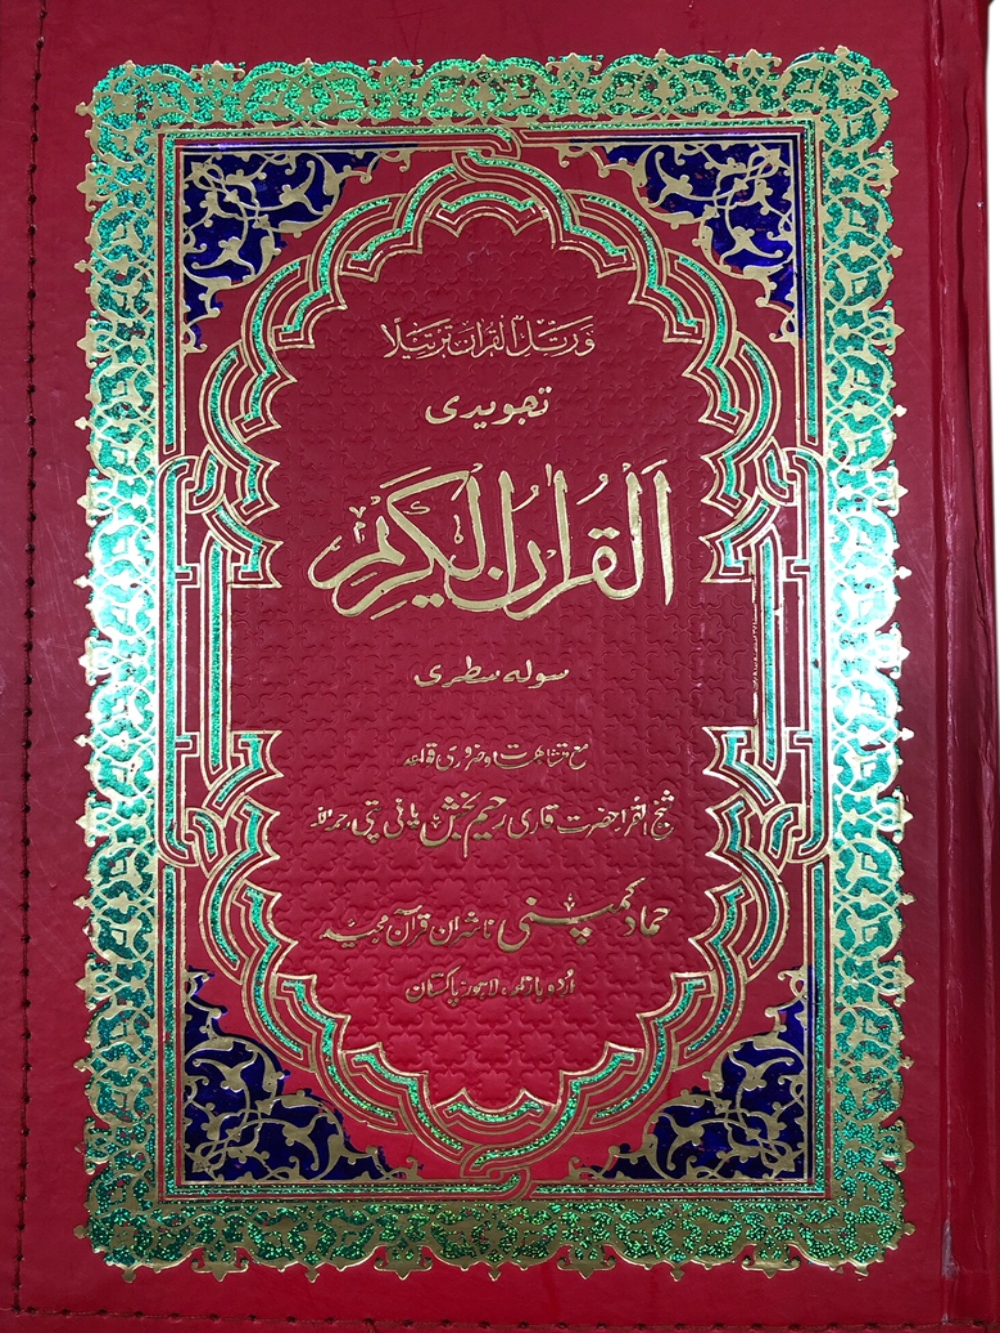 وَرَتِّلِ الْقُرْاٰنَ تَرْتِيْلًا
تجویدی
اَلْقُرْاٰنُ الْكَرِيْم
سولہ سطری
مع متشابہات و ضروری قواعد
شیخ القراء حضرت قاری رحیم بخش پانی پتی رحمہ اللہ
حماد کمپنی ناشران قرآن مجید
اُردو بازار، لاہور پاکستان